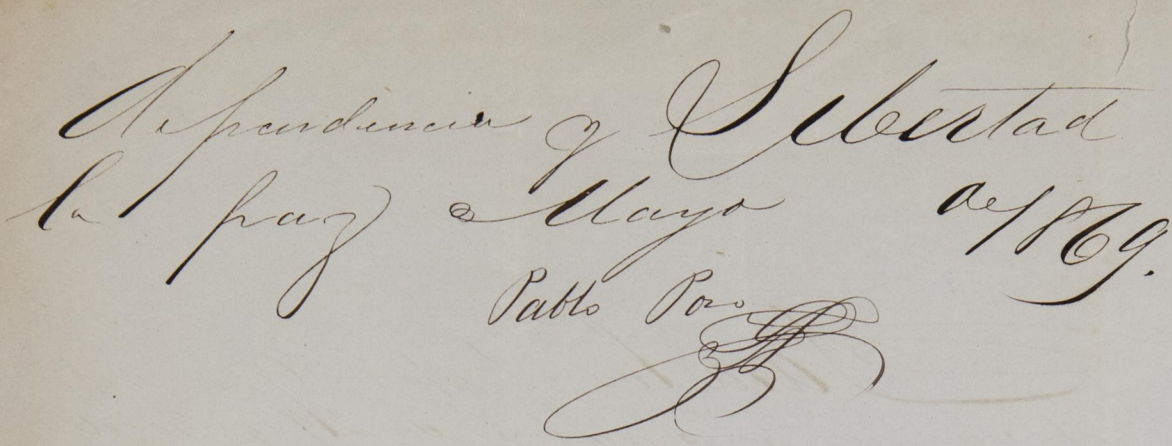 Dependencia y Libertad
la paz Mayo de 1869.
Pablo Pozo